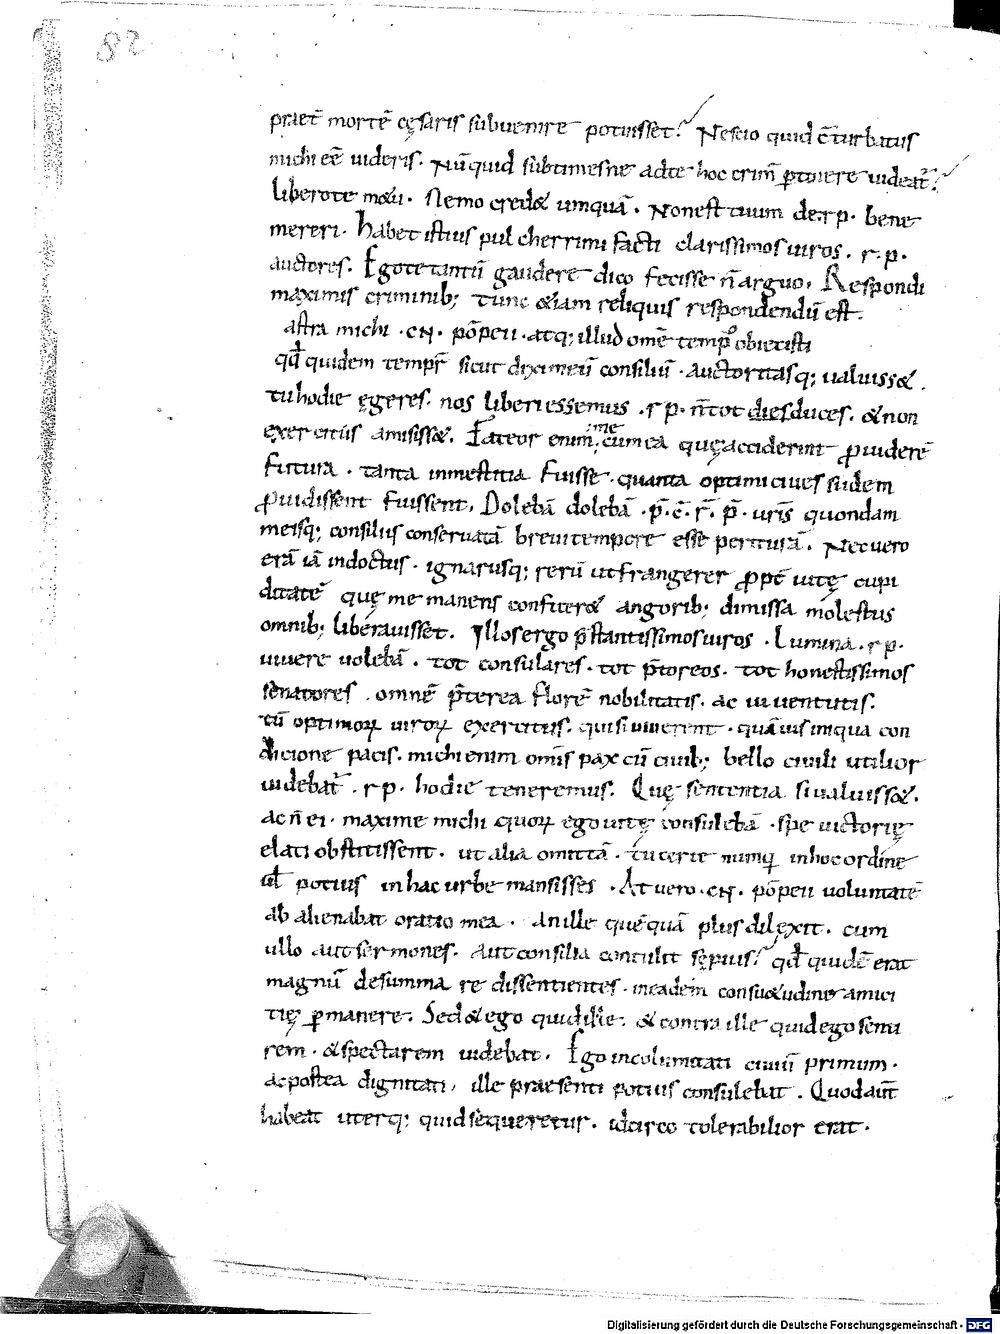 82
praet̄ mortē cęsaris subuenire potuisset? Nescio quid c̄turbatus
michi eē uideris. Nūquid subtimes ne ad te hoc crim̄ ptinere uideat̄?
libero te metu. Nemo credet umquā. Non est tuum de .r.p. bene
mereri. Habet istius pulcherrimi facti clarissimos uiros .r.p.
auctores. Ego te tantū gaudere dico fecisse n̄ arguo. Respondi
maximis criminib; tunc etiam reliquis respondendū est.
castra michi .CN. pōpeii .atq; illud omē temp obiecisti
qđ quidem tempr̄ sicut dixi meū consiliū .auctoritasq; ualuisset.
tu hodie ęgeres. nos liberi essemus .r p. n̄ tot duces. et non
exercitus amisisset. Fateor enim me cum ea quę acciderint puiderē
futura . tanta in mestitia fuisse . quanta optimi ciues si idem
puidissent fuissent. Dolebā dolebā .p̄.c̄.r̄.p̄. uris̄ quondam
meisq; consiliis conseruatā breui tempore esse periturā. Nec uero
erā iā indoctus . ignarusq; rerū ut frangerer ppt̄ uitę cupi
ditatē quę me manens conficeret angorib; dimissa molestiis
omnib; liberauisset. Illos ergo p̄stantissimos uiros . Lumina .r p.
uiuere uolebā . tot consulares . tot p̄toreos . tot honestissimos
senatores . omnē p̄terea florē nobilitatis . ac iuuentutis.
tū optimoꝝ uiroꝝ exercitus. qui si uiuerent . quāuis iniqua con
dicione pacis . michi enim omis̄ pax cū ciuib; bello ciuili utilior
uidebat̄ . r p. hodie teneremus. Quę sententia si ualuisset.
ac n̄ ei . maxime michi quoꝝ ego uitę consulebā . spe uictorię
elati obstitissent . ut alia omittā . tu certe numq in hoc ordine
uł potius in hac urbe mansisses . At uero .CN. pōpeii uoluntatē
ab alienabat oratio mea . An ille quēquā plus dilexit . cum
ullo aut sermones . aut consilia contulit sępius? qđ quidē erat
magnū de summa re dissentientes . in eadem consuetudine amici
tię pmanere . Sed et ego quid ille . et contra ille quid ego senti
rem . et spectarem uidebat . Ego incolumitati ciuiū primum .
ac postea dignitati . ille praesenti potius consulebat . Quod aut̄
habeat uterq; quid sequeretur . idcirco tolerabilior erat .
Digitalisierung gefördert durch die Deutsche Forschungsgemeinschaft - DFG